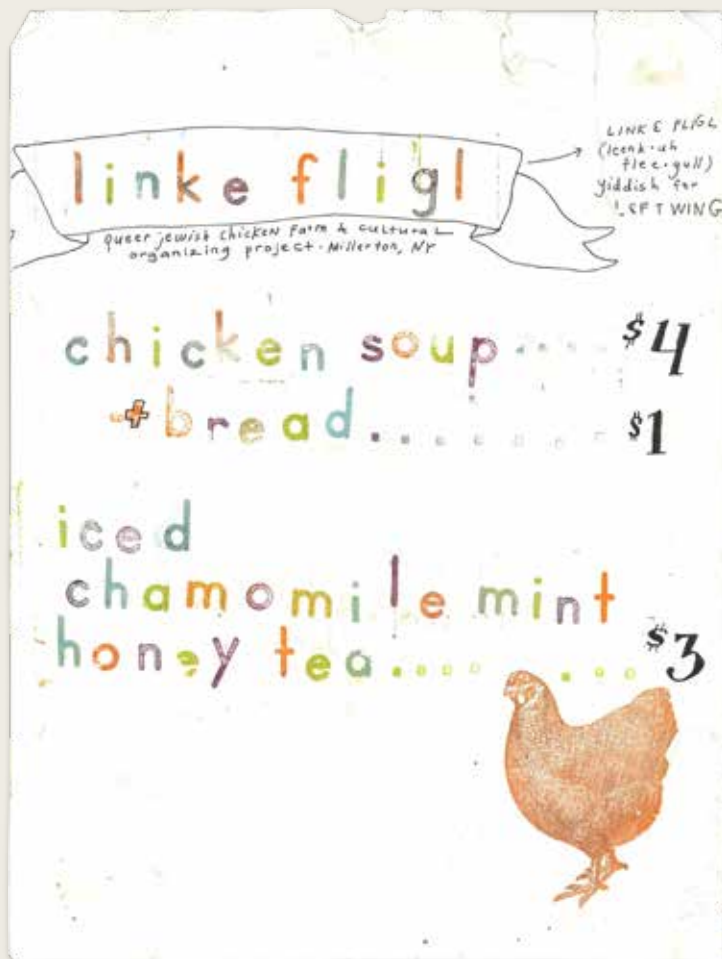 linke fligl
queer jewish chicken farm & cultural
organizing project · Millerton, NY
LINKE FLIGL
(leenk·uh
flee·gull)
yiddish for
LEFT WING
chicken soup........ $4
+ bread......... $1
iced
chamomile mint
honey tea....... $3